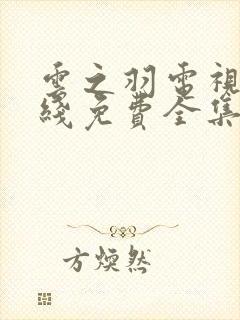 雲之羽電視
綫免費全集
方煥然